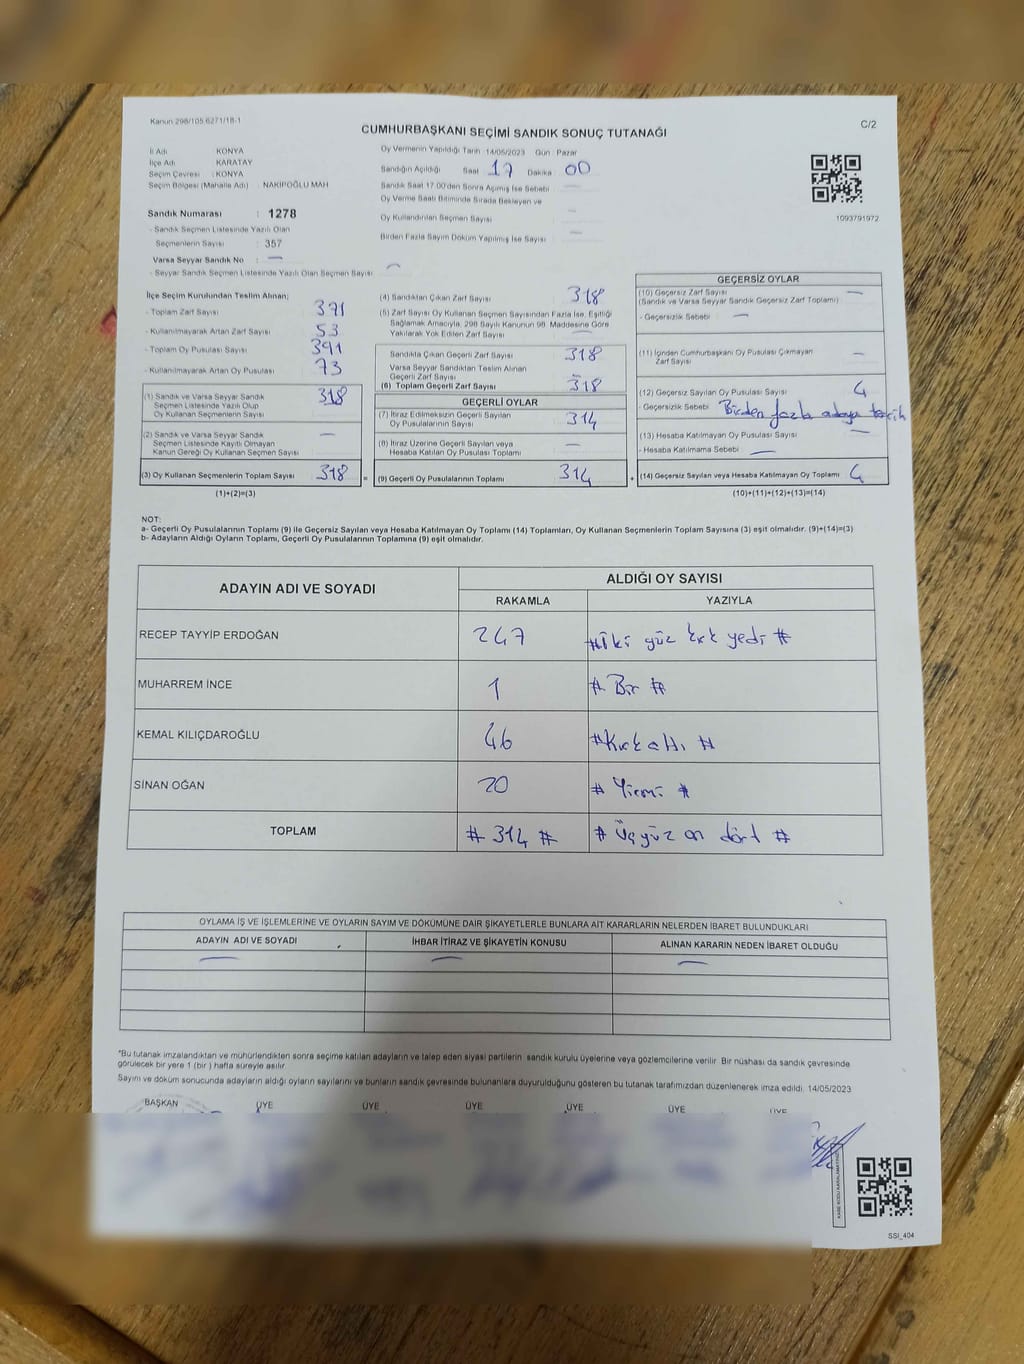 Kanun 298/105.6271/18-1
CUMHURBAŞKANI SEÇİMİ SANDIK SONUÇ TUTANAĞI
C/2
İl Adı : KONYA
İlçe Adı : KARATAY
Seçim Çevresi : KONYA
Seçim Bölgesi (Mahalle Adı) : NAKİPOĞLU MAH
Sandık Numarası : 1278
- Sandık Seçmen Listesinde Yazılı Olan
Seçmenlerin Sayısı : 357
Varsa Seyyar Sandık No : —
- Seyyar Sandık Seçmen Listesinde Yazılı Olan Seçmen Sayısı : —
Oy Vermenin Yapıldığı Tarih 14/05/2023 Gün : Pazar
Sandığın Açıldığı Saat 17 Dakika 00
Sandık Saat 17.00'den Sonra Açılmış İse Sebebi —
Oy Verme Saati Bitiminde Sırada Bekleyen ve
Oy Kullandırılan Seçmen Sayısı —
Birden Fazla Sayım Döküm Yapılmış İse Sayısı —
1093791972
İlçe Seçim Kurulundan Teslim Alınan;
- Toplam Zarf Sayısı 371
- Kullanılmayarak Artan Zarf Sayısı 53
- Toplam Oy Pusulası Sayısı 391
- Kullanılmayarak Artan Oy Pusulası 73
(1) Sandık ve Varsa Seyyar Sandık
Seçmen Listesinde Yazılı Olup
Oy Kullanan Seçmenlerin Sayısı 318
(2) Sandık ve Varsa Seyyar Sandık
Seçmen Listesinde Kayıtlı Olmayan
Kanun Gereği Oy Kullanan Seçmen Sayısı —
(3) Oy Kullanan Seçmenlerin Toplam Sayısı 318 =
(1)+(2)=(3)
(4) Sandıktan Çıkan Zarf Sayısı 318
(5) Zarf Sayısı Oy Kullanan Seçmen Sayısından Fazla İse, Eşitliği
Sağlamak Amacıyla, 298 Sayılı Kanunun 98. Maddesine Göre
Yakılarak Yok Edilen Zarf Sayısı —
Sandıkta Çıkan Geçerli Zarf Sayısı 318
Varsa Seyyar Sandıktan Teslim Alınan
Geçerli Zarf Sayısı —
(6) Toplam Geçerli Zarf Sayısı 318
GEÇERLİ OYLAR
(7) İtiraz Edilmeksizin Geçerli Sayılan
Oy Pusulasının Sayısı 314
(8) İtiraz Üzerine Geçerli Sayılan veya
Hesaba Katılan Oy Pusulası Toplamı —
(9) Geçerli Oy Pusulalarının Toplamı 314 +
GEÇERSİZ OYLAR
(10) Geçersiz Zarf Sayısı —
(Sandık ve Varsa Seyyar Sandık Geçersiz Zarf Toplamı)
- Geçersizlik Sebebi : —
(11) İçinden Cumhurbaşkanı Oy Pusulası Çıkmayan
Zarf Sayısı —
(12) Geçersiz Sayılan Oy Pusulası Sayısı 4
- Geçersizlik Sebebi : Birden fazla adaya tercih
(13) Hesaba Katılmayan Oy Pusulası Sayısı —
- Hesaba Katılmama Sebebi : —
(14) Geçersiz Sayılan veya Hesaba Katılmayan Oy Toplamı 4
(10)+(11)+(12)+(13)=(14)
NOT:
a- Geçerli Oy Pusulalarının Toplamı (9) ile Geçersiz Sayılan veya Hesaba Katılmayan Oy Toplamı (14) Toplamları, Oy Kullanan Seçmenlerin Toplam Sayısına (3) eşit olmalıdır. (9)+(14)=(3)
b- Adayların Aldığı Oyların Toplamı, Geçerli Oy Pusulalarının Toplamına (9) eşit olmalıdır.
ADAYIN ADI VE SOYADI
ALDIĞI OY SAYISI
RAKAMLA YAZIYLA
RECEP TAYYİP ERDOĞAN 247 # İki yüz kırk yedi #
MUHARREM İNCE 1 # Bir #
KEMAL KILIÇDAROĞLU 46 # Kırk altı #
SİNAN OĞAN 20 # Yirmi #
TOPLAM # 314 # # Üçyüz on dört #
OYLAMA İŞ VE İŞLEMLERİNE VE OYLARIN SAYIM VE DÖKÜMÜNE DAİR ŞİKAYETLERLE BUNLARA AİT KARARLARIN NELERDEN İBARET BULUNDUKLARI
ADAYIN ADI VE SOYADI İHBAR İTİRAZ VE ŞİKAYETİN KONUSU ALINAN KARARIN NEDEN İBARET OLDUĞU
— — —
*Bu tutanak imzalandıktan ve mühürlendikten sonra seçime katılan adayların ve talep eden siyasi partilerin sandık kurulu üyelerine veya gözlemcilerine verilir. Bir nüshası da sandık çevresinde
görülecek bir yere 1 (bir) hafta süreyle asılır.
Sayım ve döküm sonucunda adayların aldığı oyların sayılarını ve bunların sandık çevresinde bulunanlara duyurulduğunu gösteren bu tutanak tarafımızdan düzenlenerek imza edildi. 14/05/2023
BAŞKAN ÜYE ÜYE ÜYE ÜYE ÜYE ÜYE
SSI_404